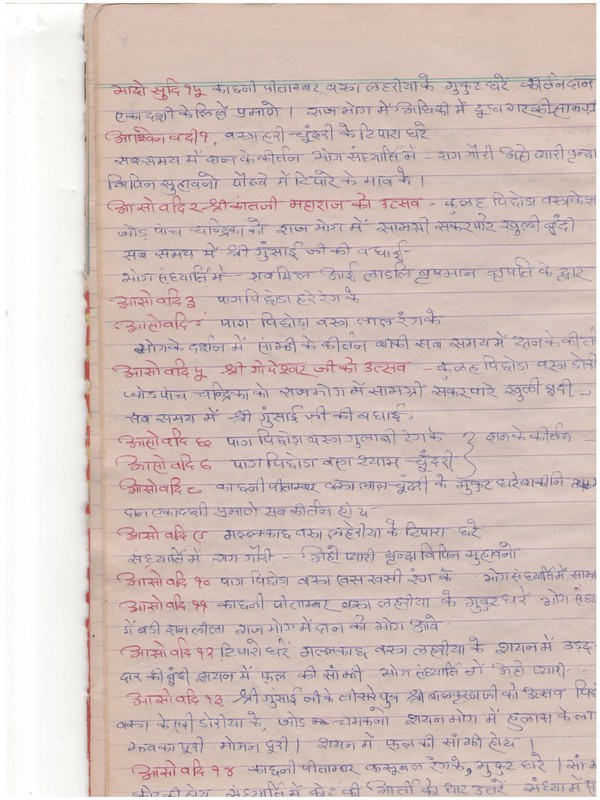 भादो सुदि १५ काछनी पीताम्बर वस्त्र लहरीया के मुकुट धरे कीर्तन दान
एकादशी के लिखे प्रमाणे । राजभोग में अधिकी में दूधघर की सामग्री
आश्विन वदी १, वस्त्र हरी चुंदरी के टिपारा धरे
सब समय में दान के कीर्तन भोग संध्यार्ति में - राग गौरी अहो प्यारी वृन्दा
विपिन सुहावनो पोढवे में टिपारे के भाव के ।
आसो वदि २ श्री महाराज को उत्सव - कुलह पिछोडा वस्त्र केश
जोड पांच चन्द्रिका को राजभोग में सामग्री सकरपारे खुली बूंदी
सब समय में श्री गुंसाई जी की वधाई -
भोग संध्यार्ति में - सब मिल आई लाडलि वृषभान नृपति के द्वार
आसो वदि ३ पाग पिछोडा हरे रंग के
आसो वदि ४ पाग पिछोडा वस्त्र लाल रंग के
भोग के दर्शन में सांझी के कीर्तन बाकी सब समय में दान के कीर्त
आसो वदि ५ श्री गोपेश्वर जी को उत्सव - कुलह पिछोडा वस्त्र डोरी
जोड पांच चन्द्रिका को राजभोग में सामग्री सकरपारे खुली बूंदी -
सब समय में श्री गुंसाई जी की बधाई .
आसो वदि ६ पाग पिछोडा वस्त्र गुलाबी रंग के } दान के कीर्तन -
आसो वदि ७ पाग पिछोडा वस्त्र श्याम चुंदरी }
आसो वदि ८ काछनी पीताम्बर वस्त्र लाल चुंदरी के मुकुट धरे
दान एकादशी प्रमाणे सब कीर्तन होय
आसो वदि ९ मल्लकाछ वस्त्र लहेरीया के टिपारा धरे
संध्यार्ति में राग गौरी - अहो प्यारी वृन्दा विपिन सुहावनो
आसो वदि १० पाग पिछोडा वस्त्र खसखसी रंग के भोग संध्यार्ति में
आसो वदि ११ काछनी पीताम्बर वस्त्र लहरीया के मुकुट धरे भोग संध्य
में बडी दानलीला राजभोग में दान को भोग आवे
आसो वदि १२ टिपारो धरे मल्लकाछ वस्त्र लहरीया के शयन में उडद
दार की बूंदी शयन में फूल की सांझी भोग संध्यार्ति में अहो प्यारी -
आसो वदि १३ श्री गुंसाई जी के तीसरे पुत्र श्री बालकृष्णजी को उत्सव पिछ
वस्त्र केसरी डोरीया के, जोड चमकनो शयन भोग में हुलास के ला
पूरी मोमन पूरी । शयन में फूल की सांझी होय ।
आसो वदि १४ काछनी पीताम्बर कसूबल रंग के, मुकुट धरे ।
कोट की होय संध्यार्ति में कोट की आर्ती के थार उतरे संध्या में